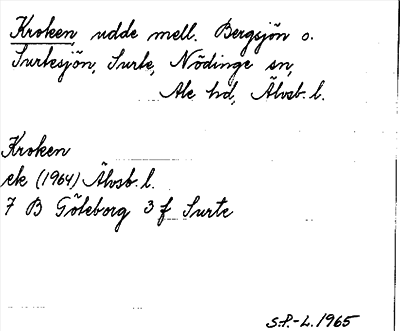 Kroken, udde mell. Bergsjön o.
Surtesjön, Surte, Nödinge sn,
Ale hd, Älvsb. l.
Kroken
ek (1964) Älvsb. l.
7 B Göteborg 3 f Surte
S.P.-L. 1965